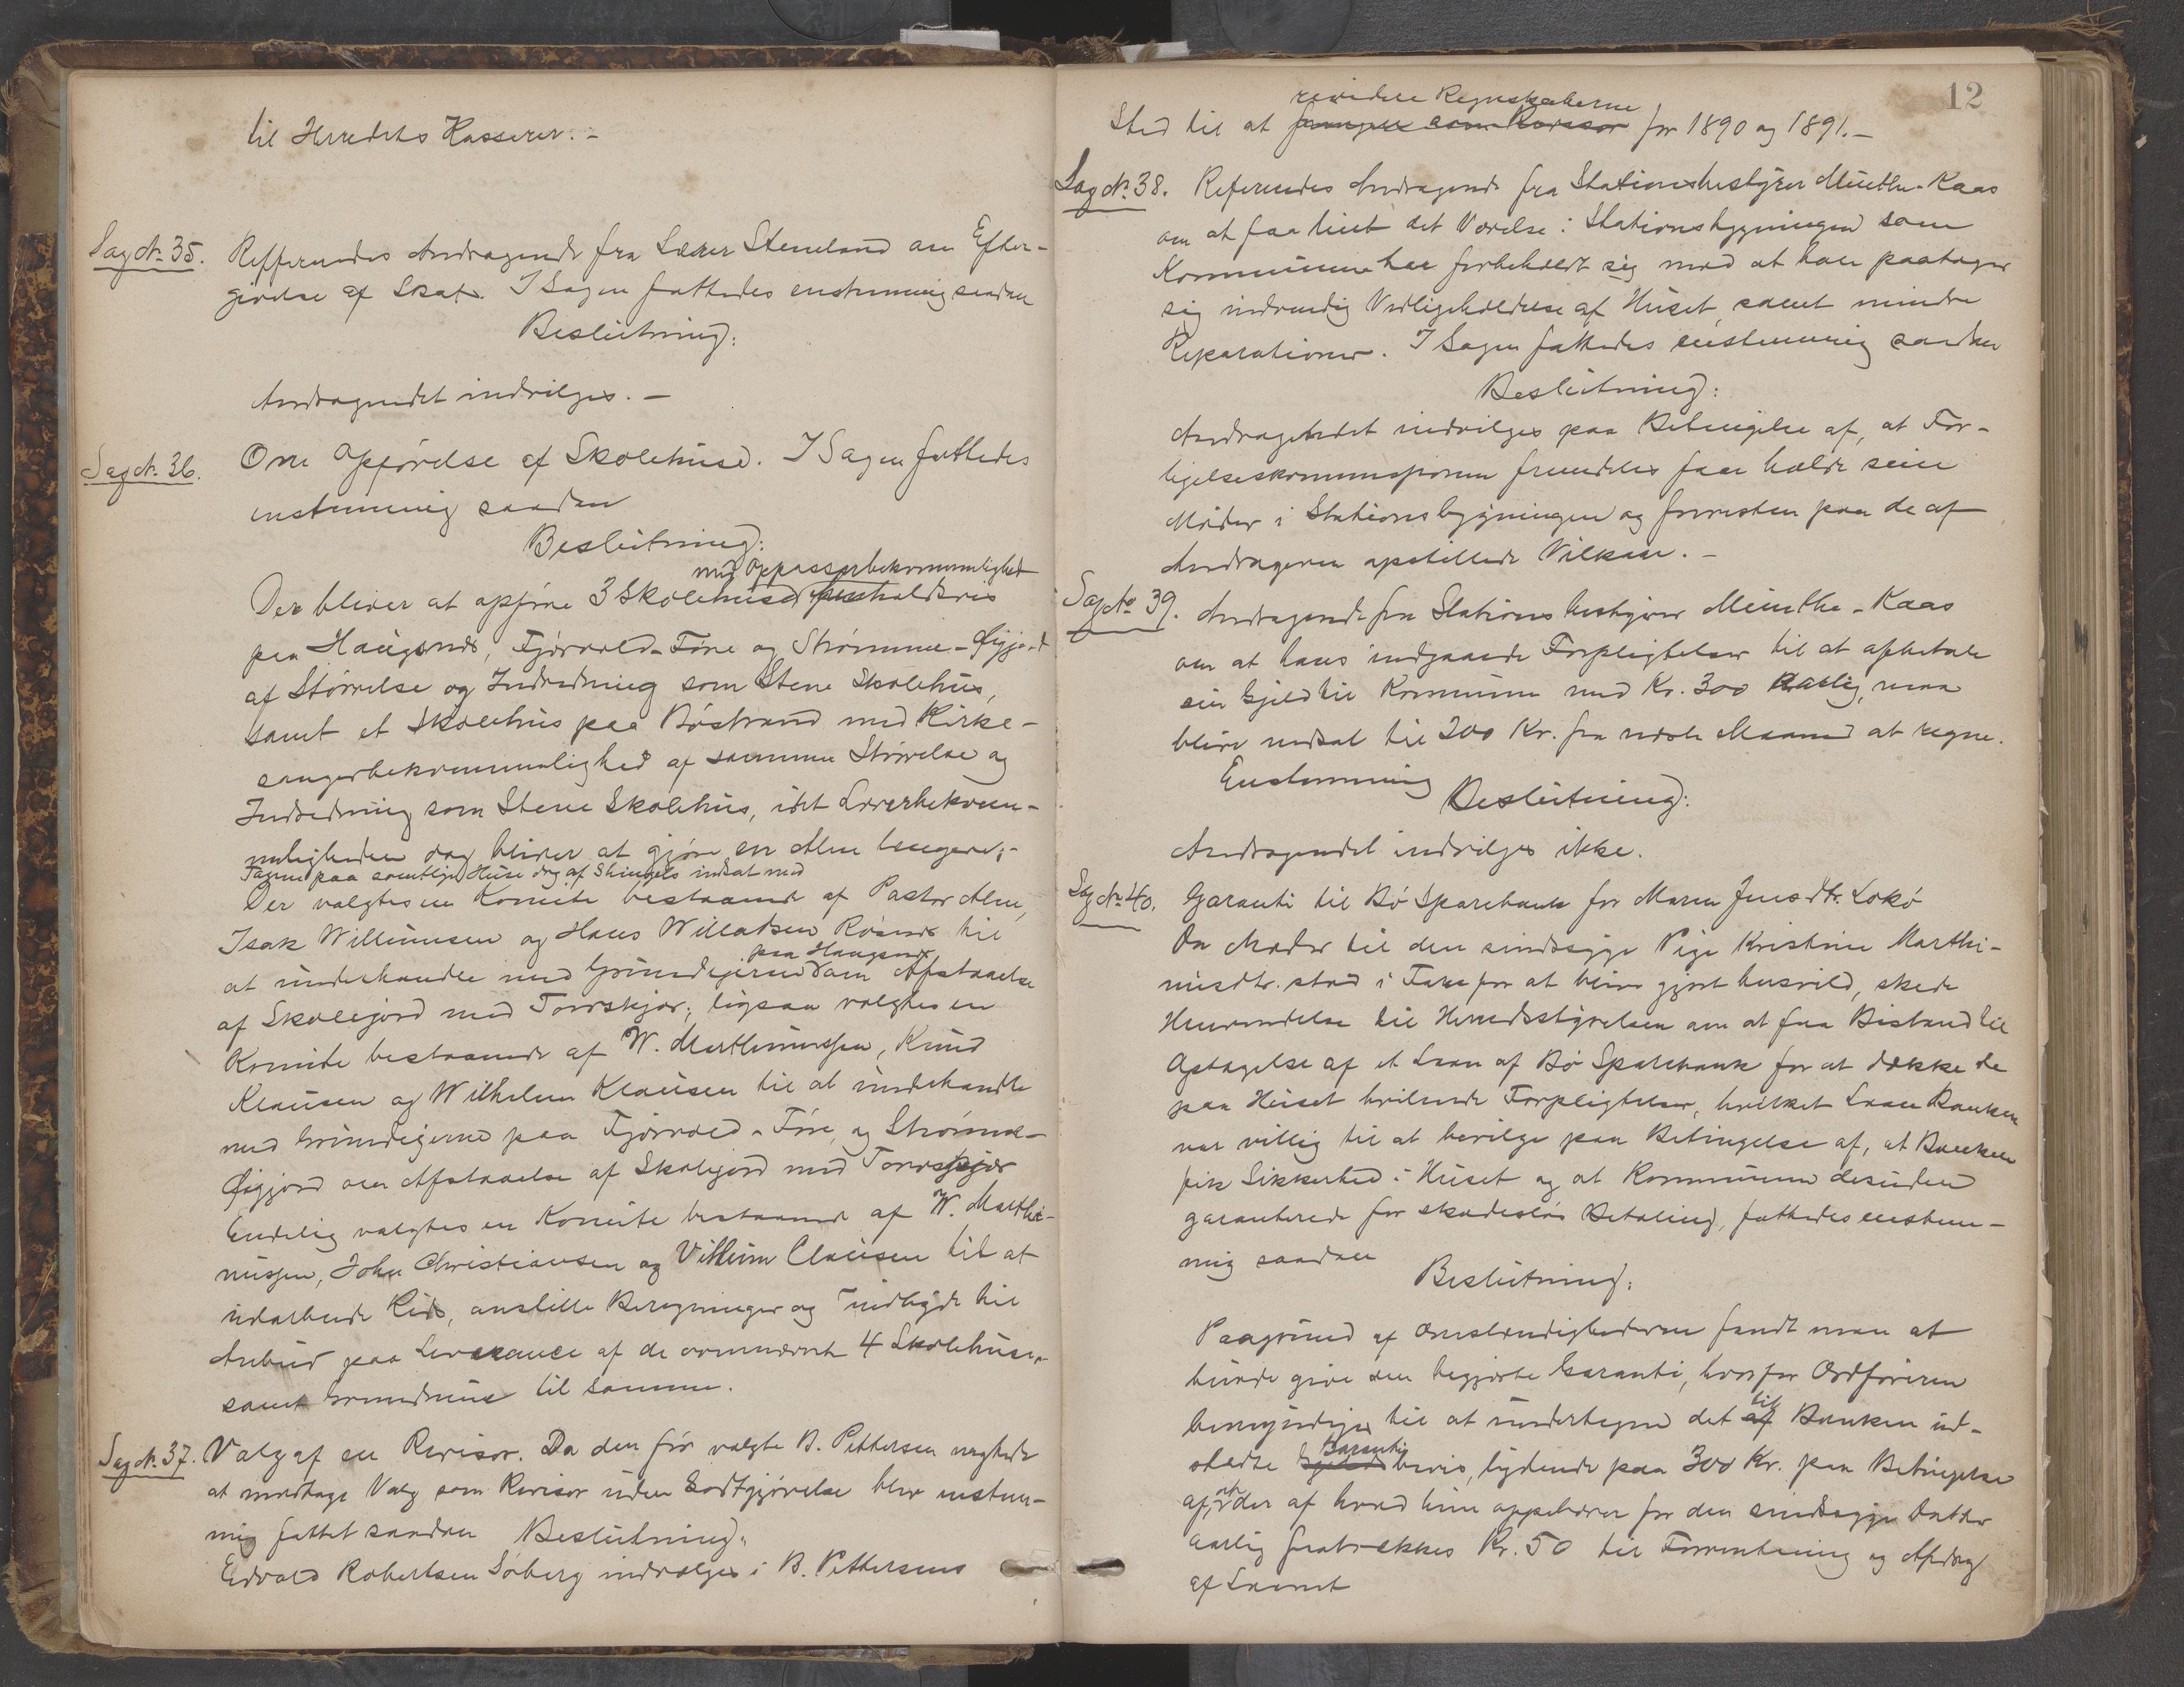 til Herredets Kasserer. -
Sag No. 35. Refferendes Andragende fra Lærer Steneland om Efter-
givelse af Skat. I Sagen fattedes enstemmig saadan
Beslutning:
Andragendet indvilges. -
Sag No. 36. Om Opførelse af Skolehuse. I Sagen fattedes
enstemmig saadan
Beslutning:
med Oppasserbekvemmelighed
Der bliver at opføre 3 Skolehuse
paa Haugsnes, Fjærvold-Føre og Strømme-Øigjord
af Størrelse og Indredning som Stene Skolehus,
samt et Skolehus paa Bøstrand med Kirke-
sangerbekvemmelighed af samme Størrelse og
Indredning som Stene Skolehus, idet Lærerbekvem-
meligheden dog bliver at gjøre en Alen længere;-
Tagene paa samtlige Huse dog af Shingels indsat med
Der valgtes en Komite bestaaende af Pastor Alme,
Isak Willumsen og Hans Willadsen Røsnes til
paa Haugsnes
at underhandle med Grundeierne om Afstaaelse
af Skolejord med Torvskjær; ligesaa valgtes en
Komite bestaaende af W. Marthinussen, Knud
Klausen og Wilhelm Klausen til at underhandle
med Grundeierne paa Fjærvold-Føre og Strømme-
Øigjord om Afstaaelse af Skolejord med Torvskjær
Endelig valgtes en Komite bestaaende af W. Marthi-
nussen, John Christiansen og Vilhelm Clausen til at
udarbeide Rids, anstille Beregninger og indbyde til
Anbud paa Leverance af de ovennævnte 4 Skolehuse,
samt Grundmure til samme.
Sag No. 37. Valg af en Revisor. Da den før valgte B. Pettersen negtede
at modtage Valg som Revisor uden Godtgjørelse blev enstem-
mig fattet saadan Beslutning:
Edvard Robertsen Søberg indvælges i B. Pettersens
12
revidere Regnskaberne
Sted til at fungere som Revisor for 1890 og 1891.-
Sag No. 38. Referendes Andragende fra Stationsbestyrer Münthe-Kaas
om at faa leiet det Værelse i Stationsbygningen som
Kommunen har forbeholdt sig mod at han paatager
sig indvendig Vedligeholdelse af Huset, samt mindre
Reparationer. I Sagen fattedes enstemmig saadan
Beslutning:
Andragendet indvilges paa Betingelse af, at For-
ligelseskommissionen fremdeles faar holde sine
Møder i Stationsbygningen og forresten paa de af
Andrageren opstillede Vilkaar. -
Sag No 39. Andragende fra Stationsbestyrer Münthe-Kaas
om at hans indgaaede Forpligtelser til at afbetale
sin Gjeld til Kommunen med Kr. 300 Aarlig, maa
blive nedsat til 200 Kr. fra næste Maaned at regne.
Enstemmig
Beslutning:
Andragendet indvilges ikke.
Sag No. 40. Garanti til Bø Sparebank for Maren Jensdtr. Lokø
Da Moder til den sindssyge Pige Kristine Marthi-
nusdtr. stod i Fare for at blive gjort husvild, skede
Henvendelse til Herredsstyrelsen om at faa Bistand til
Optagelse af et Laan af Bø Sparebank for at dække de
paa Huset hvilende Forpligtelser, hvilket Laan Banken
var villig til at bevilge paa Betingelse af, at Banken
fik Sikkerhed i Huset og at Kommunen desuden
garanterede for skadesløs Betaling, fattedes enstem-
mig saadan
Beslutning:
Paagrund af Omstændighederne fandt man at
burde give den begjærte Garanti, hvorfor Ordføreren
bemyndiges til at undertegne det af til Banken ud-
stedte Gjelds Garanti bevis, lydende paa 300 Kr. paa Betingelse
af, at der af hvad hun oppebærer for den sindssyge Datter
aarlig fratrækkes Kr. 50 til Forrentning og Afdrag
af Laanet